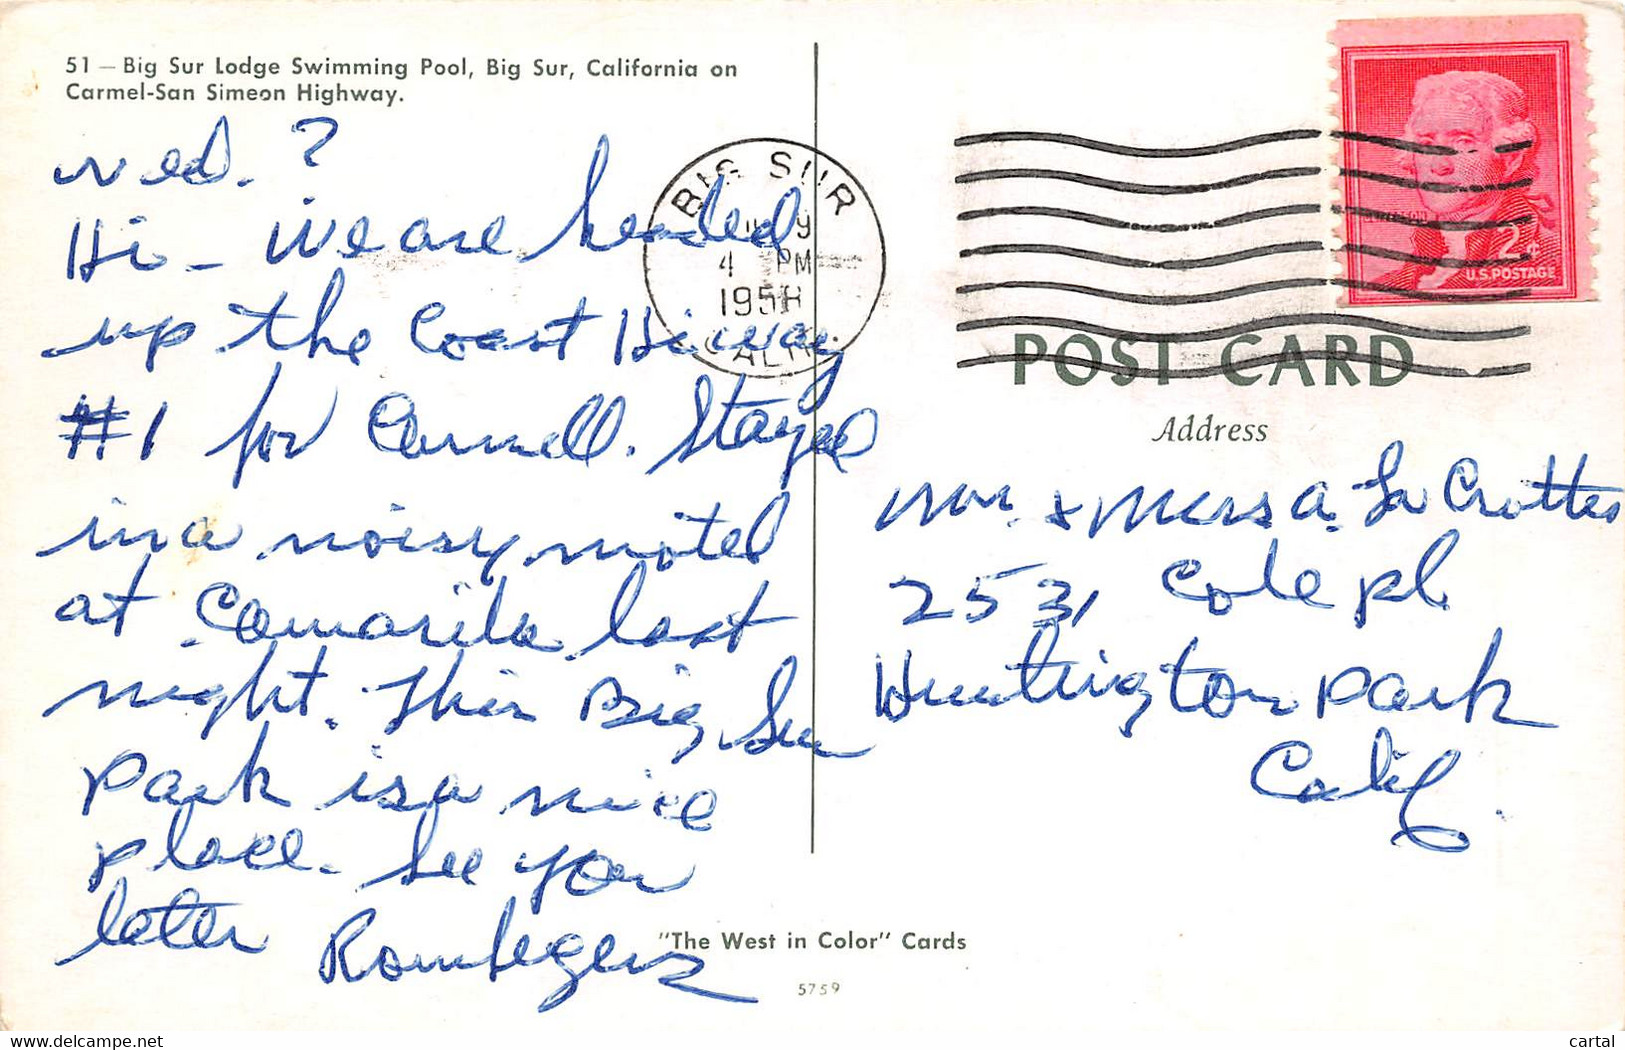 51 — Big Sur Lodge Swimming Pool, Big Sur, California on
Carmel-San Simeon Highway.
wed. ?
Hi - We are headed
up the Coast Hiway
#1 for Carmell. Stayed
in a noisy motel
at Camarilla last
night. This Big Sur
Park is a nice
place. See you
later
BIG SUR
9
4 PM
195
CALIF.
2¢
U.S. POSTAGE
POST CARD
Address
Mr. & Mrs A. La Crotter
2531 Cole pl.
Huntington Park
Calif.
"The West in Color" Cards
5759
www.delcampe.net
cartal